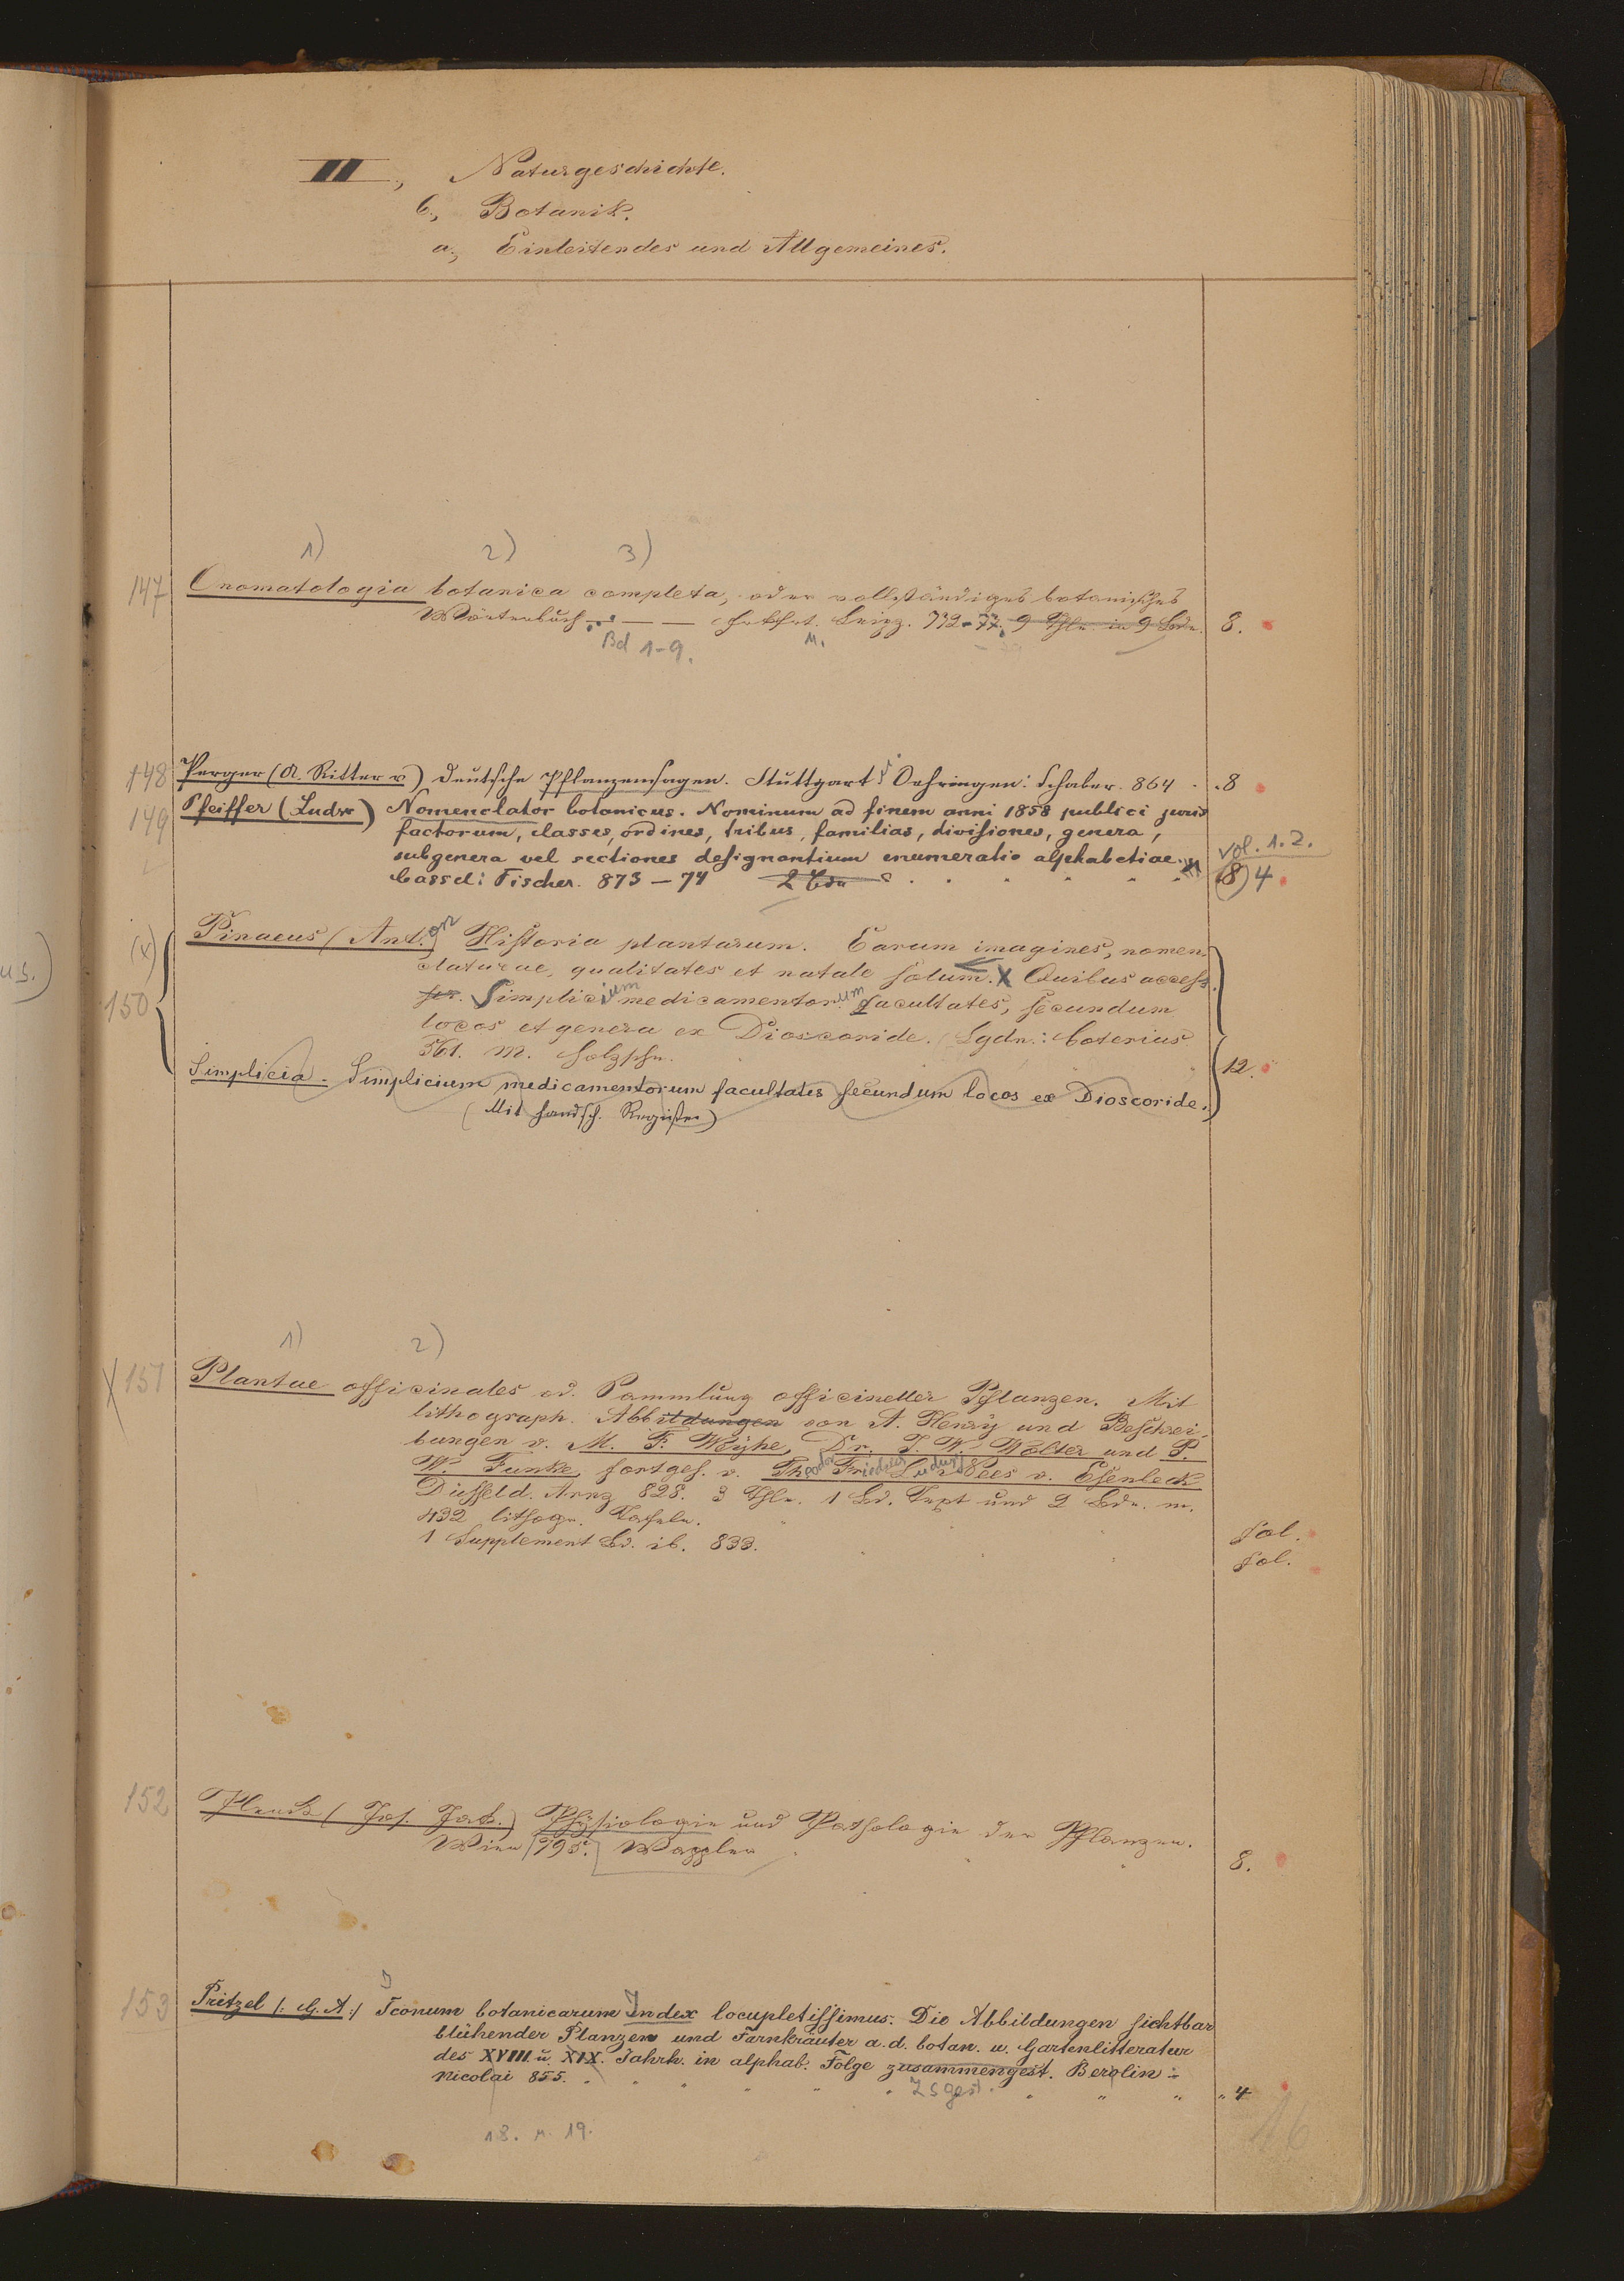 III., Naturgeschichte.
b., Botanik.
a., Einleitendes und Allgemeines.
1) 2) 3)
147 Onomatologia botanica completa, oder vollständiges botanisches
Wörterbuch — — Frkfrt. Leipz. 772-77. 9 Thle. in 9 Bdn. 8.
Bd 1-9. u.
148 Perger (A. Ritter v) Deutsche Pflanzensagen. Stuttgart u. Oehringen: Schaber. 864 . 8
149 Pfeiffer (Ludw) Nomenclator botanicus. Nominum ad finem anni 1858 publici juris
factorum, classes, ordines, tribus, familias, divisiones, genera,
subgenera vel sectiones designantium enumeratio alphabetiae. vol. 1.2.
Cassel: Fischer. 873—74 2 Bde (8) 4
(x) Pinaeus (Ant.on) Historia plantarum. Earum imagines, nomen-
claturae, qualitates et natale solum. X Quibus access.
150 ser. Simplicium medicamentorum facultates, secundum
locos et genera ex Dioscoride. Lgdn.: Coterius
561. M. Holzschn.
Simplicia. Simplicium medicamentorum facultates secundum locos ex Dioscoride. 12.
(Mit handsch. Register)
1) 2)
X 151 Plantae officinales od. Sammlung officineller Pflanzen. Mit
lithograph. Abbildungen von A. Henry und Beschrei-
bungen v. M. F. Weyhe, Dr. J. W. Wolter und P.
W. Funke, fortges. v. Theodr Friedrich Ludwg Nees v. Esenbeck
Düsseld. Arnz 828. 3 Thle. 1 Bd. Text und 2 Bde. m.
432 lithogr. Tafeln. fol.
1 Supplement Bd. ib. 833. fol.
152 Plenck (Jos. Jak.) Physiologie und Pathologie der Pflanzen.
Wien 795. Wappler 8.
153 Pritzel /: G. A:/ Iconum botanicarum Index locupletissimus. Die Abbildungen sichtbar
blühender Planzen und Farnkräuter a. d. botan. u. Gartenlitteratur
des XVIII. u. XIX. Jahrh. in alphab. Folge zusammengest. Berolin:
Nicolai 855. „ 4
Zsgest.
18. u. 19.
16